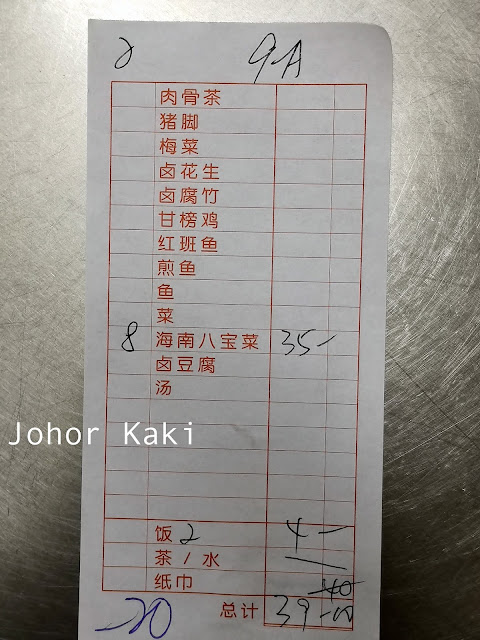 2 9-A
肉骨茶
猪脚
梅菜
卤花生
卤腐竹
甘榜鸡
红班鱼
煎鱼
鱼
菜
8 海南八宝菜 35-
卤豆腐
汤
Johor Kaki
饭 2 4-
茶/水 —
纸巾 40
总计 39-00
-20